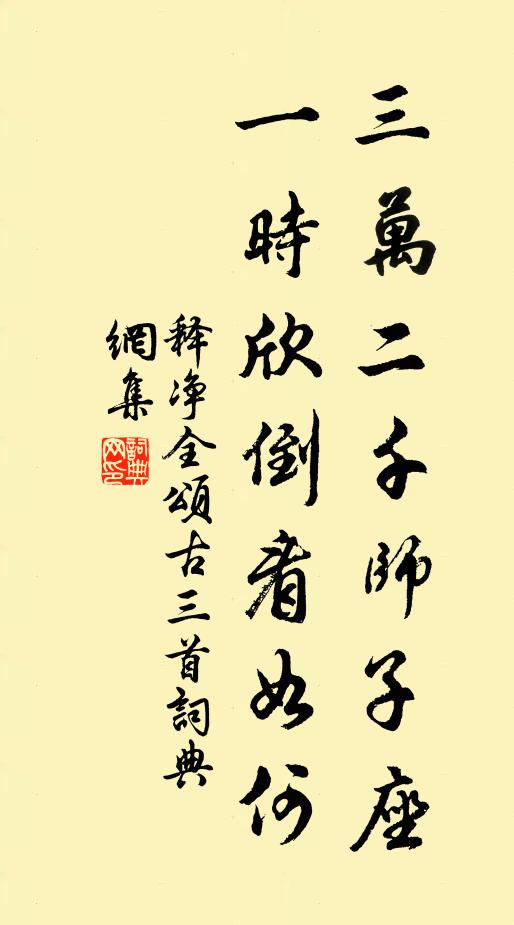 三萬二千師子座
一時欣倒看如何
释净全頌古三首詞典
網集
詞典
网印